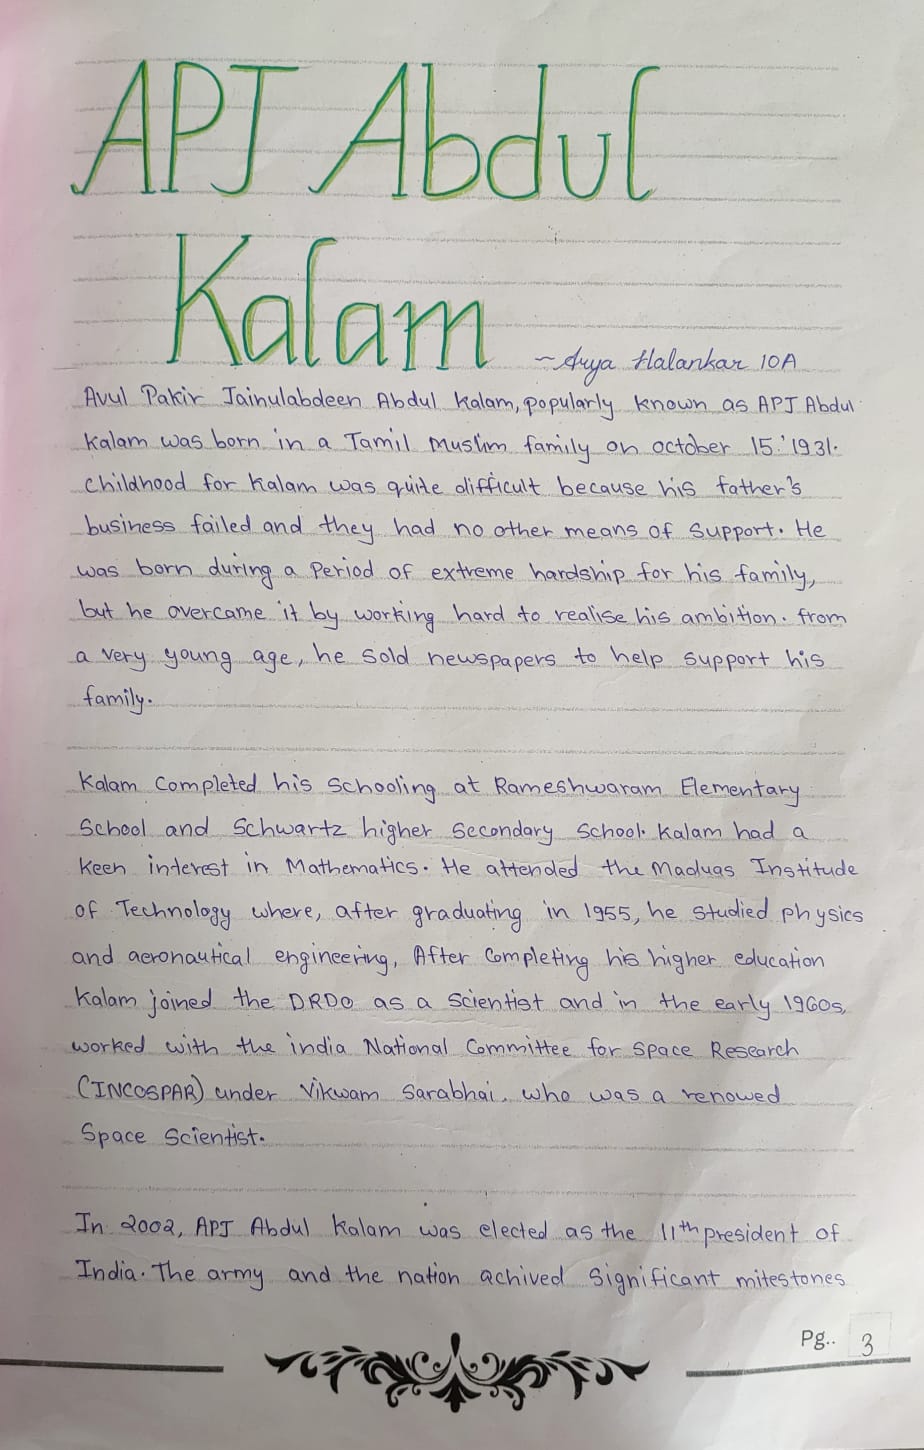 APJ Abdul
Kalam
~ Arya Halankar 10A
Avul Pakir Jainulabdeen Abdul Kalam, popularly known as APJ Abdul
Kalam was born in a Tamil Muslim family on october 15. 1931.
Childhood for Kalam was quite difficult because his father's
business failed and they had no other means of support. He
was born during a Period of extreme hardship for his family,
but he overcame it by working hard to realise his ambition. from
a very young age, he sold newspapers to help support his
family.
Kalam Completed his Schooling at Rameshwaram Elementary
School and Schwartz higher Secondary School. Kalam had a
keen interest in Mathematics. He attended the Maduas Institude
of Technology where, after graduating in 1955, he studied physics
and aeronautical engineering, After Completing his higher education
Kalam joined the DRDO as a scientist and in the early 1960s,
worked with the india National Committee for Space Research
(INCOSPAR) under Vikwam Sarabhai, who was a renowed
Space Scientist.
In 2002, APJ Abdul Kalam was elected as the 11th president of
India. The army and the nation achived Significant mitestones
Pg.. 3